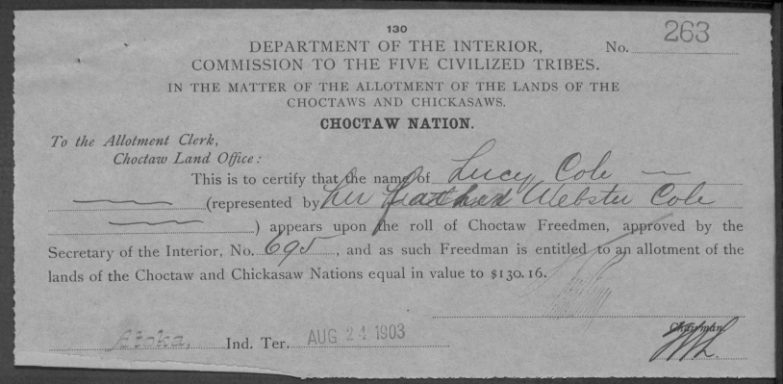 130
DEPARTMENT OF THE INTERIOR, No. 263
COMMISSION TO THE FIVE CIVILIZED TRIBES.
IN THE MATTER OF THE ALLOTMENT OF THE LANDS OF THE
CHOCTAWS AND CHICKASAWS.
CHOCTAW NATION.
To the Allotment Clerk,
Choctaw Land Office:
This is to certify that the name of Lucy Cole
(represented by her father Webster Cole
) appears upon the roll of Choctaw Freedmen, approved by the
Secretary of the Interior, No. 695, and as such Freedman is entitled to an allotment of the
lands of the Choctaw and Chickasaw Nations equal in value to $130.16.
Chairman.
Atoka, Ind. Ter. AUG 24 1903